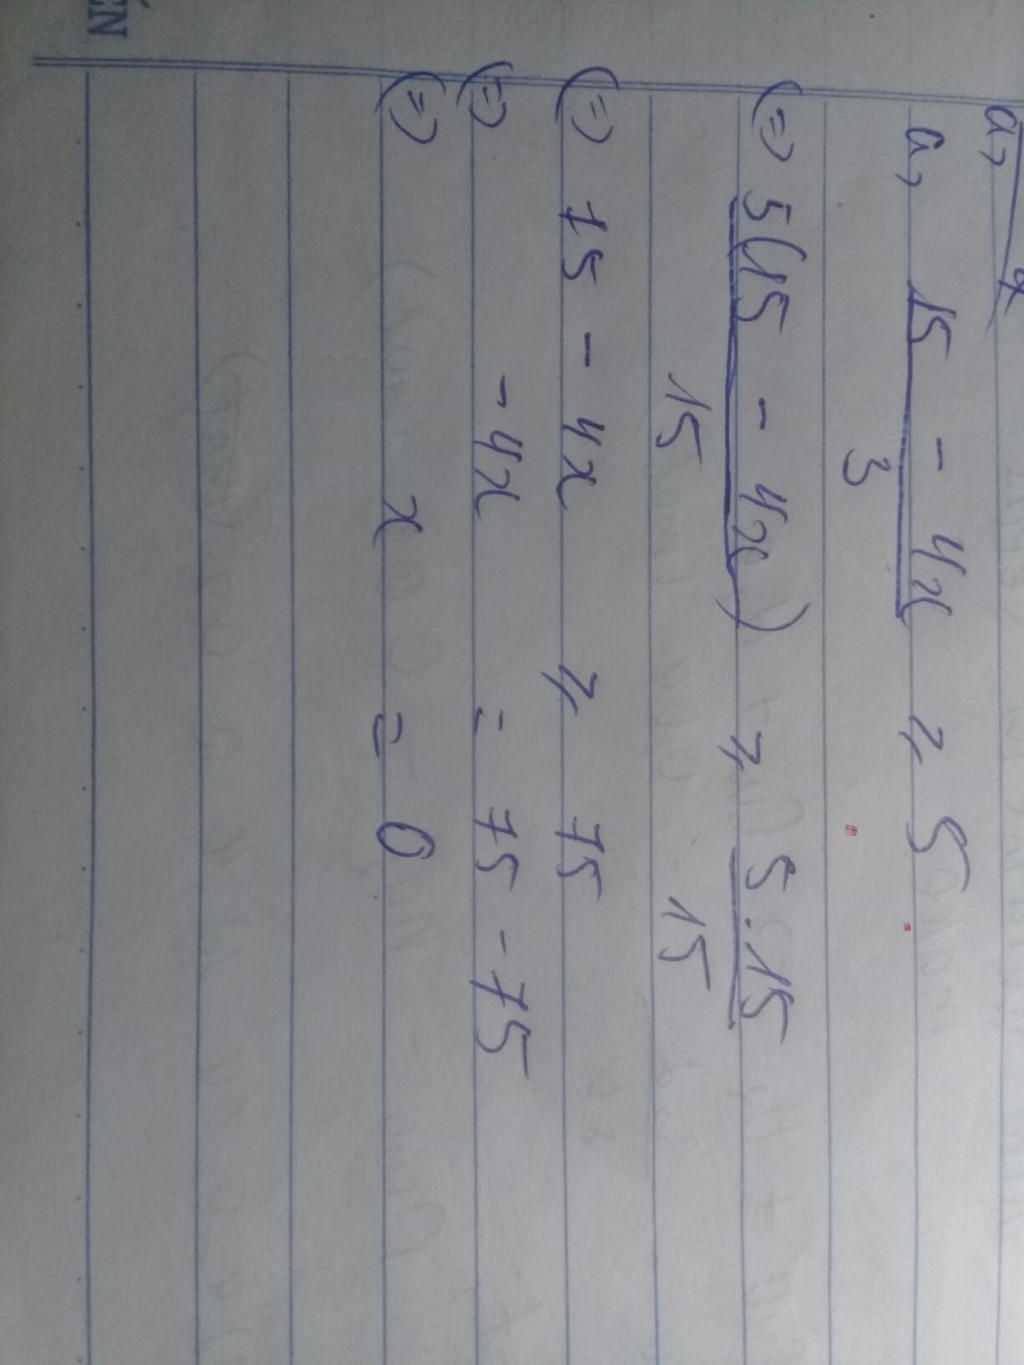 ẾN
a,
a, 15 - 4x ≥ 5
3
(=) 5(15 - 4x) ≥ 5.15
15 15
(=) 75 - 4x ≥ 75
(=) -4x = 75 - 75
(=) x = 0